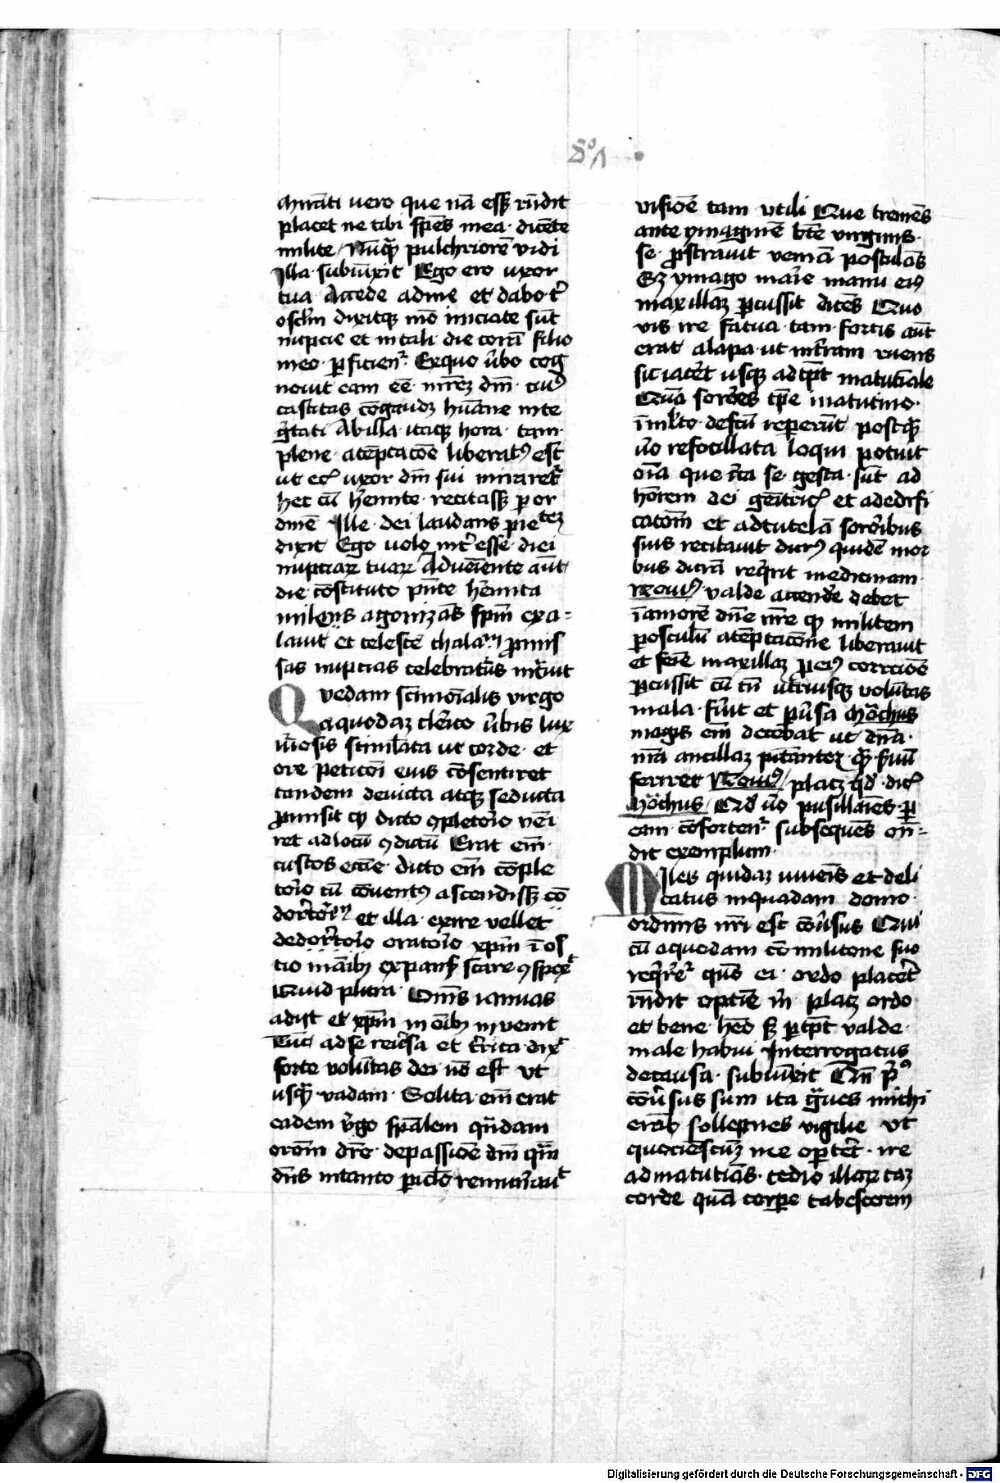 miranti vero que nã eẞ rñdit
placet ne tibi spẽs mea · dicẽte
milite / Nũqͣ pulchriorẽ vidi
Illa · subiũxit Ego ero uxor
tua Accede ad me et dabo tͥ
osclm̃ dixitqꝫ mõ iniciate sũt
nupcie et in tali · die corã filio
meo · ꝑficienͭ Ex quo ũbo cog
novit eam eẽ mr̃eꝫ dñi · cuiꝰ
castitas cõgaudꝫ hũane inte
gͥtati Ab illa · itaqꝫ hora · tam
plene · atẽptacõe liberatꝰ est
ut ecͣ uxor dñi sui miraretͬ
hec cũ heͬmite · recitaẞ ꝑ or
dinẽ Ille · dei laudans pietateꝫ
dixit Ego volo intͥesse · diei
nuptiaꝝ tuaꝝ Adueniente aũt
die cõstituto pñte heͬmita
miles agonizãs spm̃ exa-
lavit et celestẽ ad thala · ꝓmis
sas nupcias celebratũs intͣuit
Quedam sc̃imoĩalis virgo
a quodaꝫ clerico ũbis lux
uͥosis stimlata ut corde · et
ore peticõi eius cõsentiret
tandem deuicta atqꝫ seducta
ꝓmisit qͣ dicto ꝯpletoͥo veni
ret ad locũ ꝯdictũ Erat em̃ ·
custos eccͤe · dicto em̃ cõple
toͥo cũ cõventꝰ ascendiẞ cõ
dorͥtoͥ et illa · exire vellet
de dorͥtoͥo oratoͥo xp̃m ĩ os
tio mãibꝫ expansͥ stare ꝯspexͭ
Quid plura · Om̃s ianuas
adijt et xp̃m in oĩbꝫ invenit
Tũc ad se reũsa et tͬrita dixͭ
forte volũtas dei nõ est ut
usqͣ vadam · Solita em̃ erat
eadem vͥgo spãlem qñdam
orom̃ dr̃e · de passiõe dñi qm̃
dñs in tanto ꝑiclõ remunẽauͭ
visiõe tam utili Que tremẽs
ante ymaginẽ btẽ virginis ·
se · ꝓstravit veniã postulãs
Sꝫ ymago marie manu eiꝰ
maxillaꝫ ꝑcussit dicẽs Quo
vis ire fatua · tam · fortis aũt
erat alapa · ut in tͬram ruens
sic iacet͂ usqꝫ ad tp̃t matutiale
Quã sorores tp̃e matutino ·
ĩ mlto · defcũ repererũt postqͣ
ũo refocillata loqui potuit
oĩa que cͬta se · gesta · sũt ad
honorem dei genͥtricͥ et ad edifi
cacom̃ et ad tutelã sorõibus
suis recitauit durꝰ quidẽ mor
bus durã reqͥrit medicinam ·
Nouiꝰ · valde attendͤe debet
ĩ amorẽ dñe nr̃e qͣ militem
ꝑ osculũ atẽptacione liberavit
et femĩe maxillaꝫ ꝑ eiꝰ correciõe
ꝑcussit cũ tñ utriusqꝫ volũtas
mala · fuͥit et ꝑũsa Mõchus
magis em̃ decebat ut dña ·
nr̃a ancillaꝫ pitãnteꝝ qͣ suũ
feriret Nouiꝰ / placꝫ qd · dicͥ
Mõchus / Qd ũo pusillaiẽs ꝑ
eam · cõfortenͭ subsequẽs oñ=
dit exemplum ·
Miles quidaꝫ iuuenis et deli
catus in quadam domo ·
ordinis nr̃i est cõũsus Qui
cũ a quodam commilitone suo
reqͥretͬ quõ ei · ordo placetͬ
rñdit optie m̃ placꝫ ordo
et bene · heõ sꝫ ꝑ tp̃t valde ·
male habui Interrogatus
de causa · subiũxit Qñ pͥꝰ
cõũsus sum ita gͣues michi
erãt sollepnes vigilie ut
quociẽscũqꝫ me oꝑtet͂ · ire
ad matutiãs · tedio illaꝝ taꝫ
corde quã corpe tabescerem
Digitalisierung gefördert durch die Deutsche Forschungsgemeinschaft - DFG